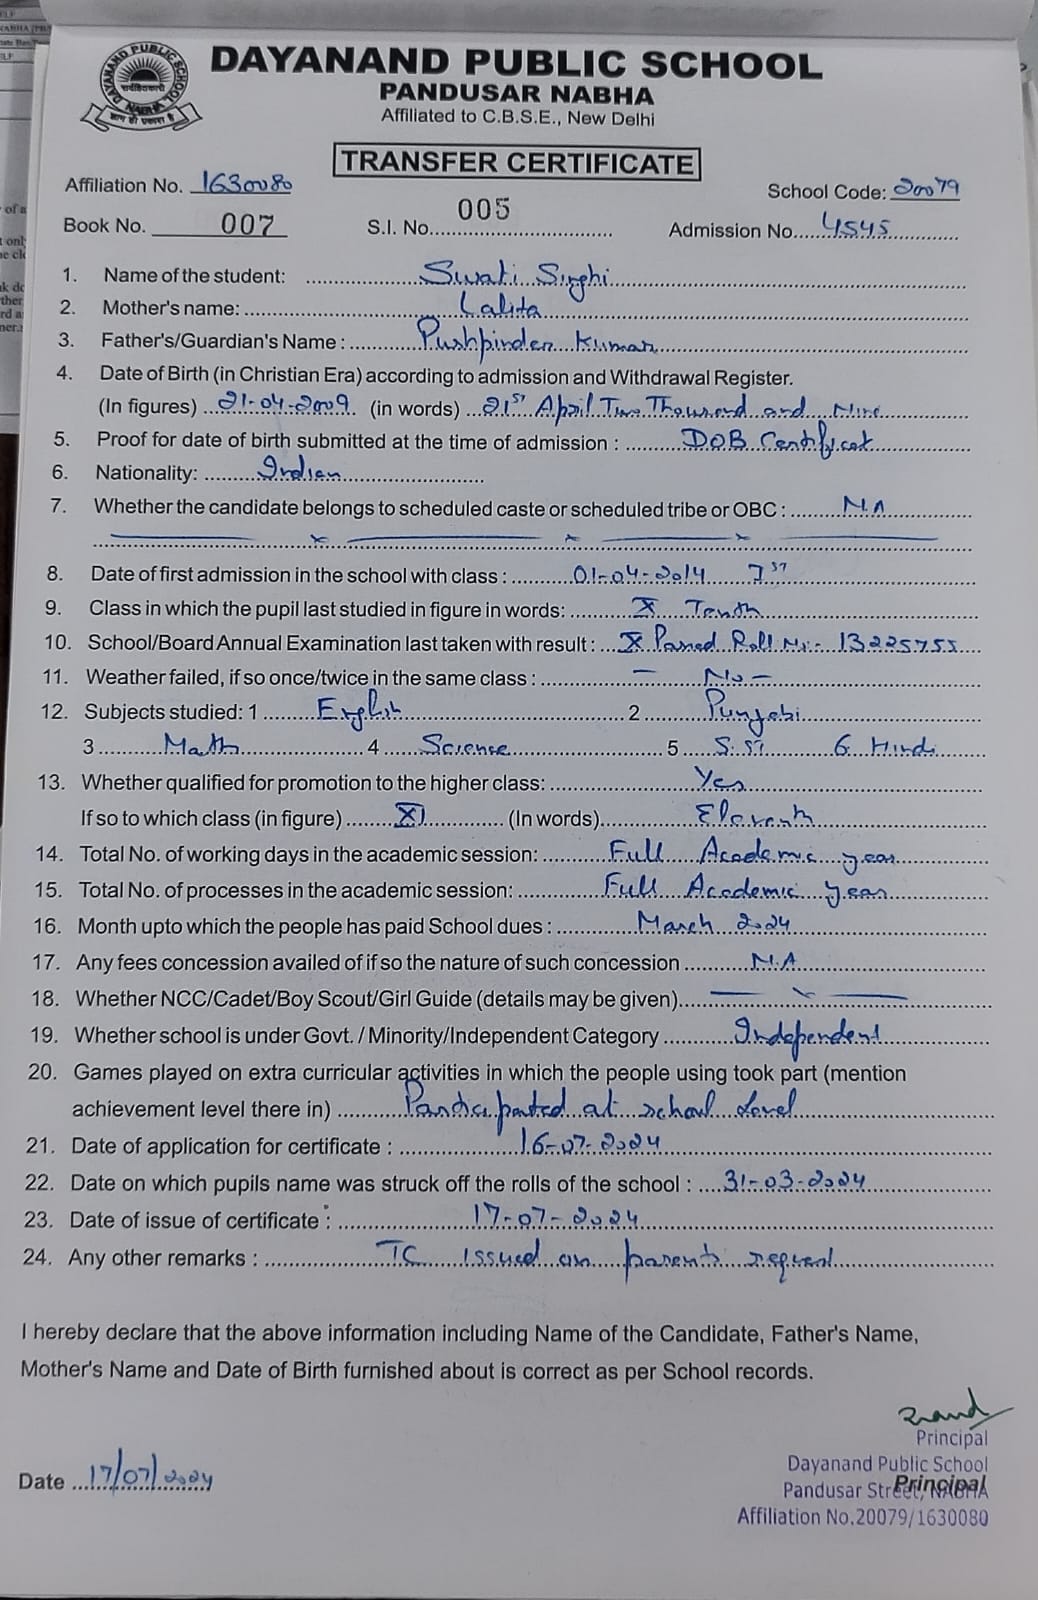 DAYANAND PUBLIC SCHOOL
PANDUSAR NABHA
Affiliated to C.B.S.E., New Delhi
TRANSFER CERTIFICATE
Affiliation No. 1630080 School Code: 20079
Book No. 007 S.I. No. 005 Admission No. 4545
1. Name of the student: Swati Singhi
2. Mother's name: Lalita
3. Father's/Guardian's Name : Pushpinder Kumar
4. Date of Birth (in Christian Era) according to admission and Withdrawal Register.
(In figures) 21-04-2009 (in words) 21st April Two Thousand and Nine
5. Proof for date of birth submitted at the time of admission : DOB Certificat
6. Nationality: Indian
7. Whether the candidate belongs to scheduled caste or scheduled tribe or OBC : N.A
8. Date of first admission in the school with class : 01-04-2014
9. Class in which the pupil last studied in figure in words: X Tenth
10. School/Board Annual Examination last taken with result : X Passed Roll No:- 13225755
11. Weather failed, if so once/twice in the same class : — No —
12. Subjects studied: 1 English 2 Punjabi
3 Math 4 Science 5 S.St 6 Hindi
13. Whether qualified for promotion to the higher class: Yes
If so to which class (in figure) XI (In words) Eleventh
14. Total No. of working days in the academic session: Full Academic year
15. Total No. of processes in the academic session: Full Academic year
16. Month upto which the people has paid School dues : March 2024
17. Any fees concession availed of if so the nature of such concession N.A
18. Whether NCC/Cadet/Boy Scout/Girl Guide (details may be given)
19. Whether school is under Govt. / Minority/Independent Category Independent
20. Games played on extra curricular activities in which the people using took part (mention
achievement level there in) Participated at school Level
21. Date of application for certificate : 16-07-2024
22. Date on which pupils name was struck off the rolls of the school : 31-03-2024
23. Date of issue of certificate : 17-07-2024
24. Any other remarks : TC issued on parents request
I hereby declare that the above information including Name of the Candidate, Father's Name,
Mother's Name and Date of Birth furnished about is correct as per School records.
Principal
Dayanand Public School
Date 17/07/2024
Pandusar Street, NABHA
Principal
Affiliation No.20079/1630080